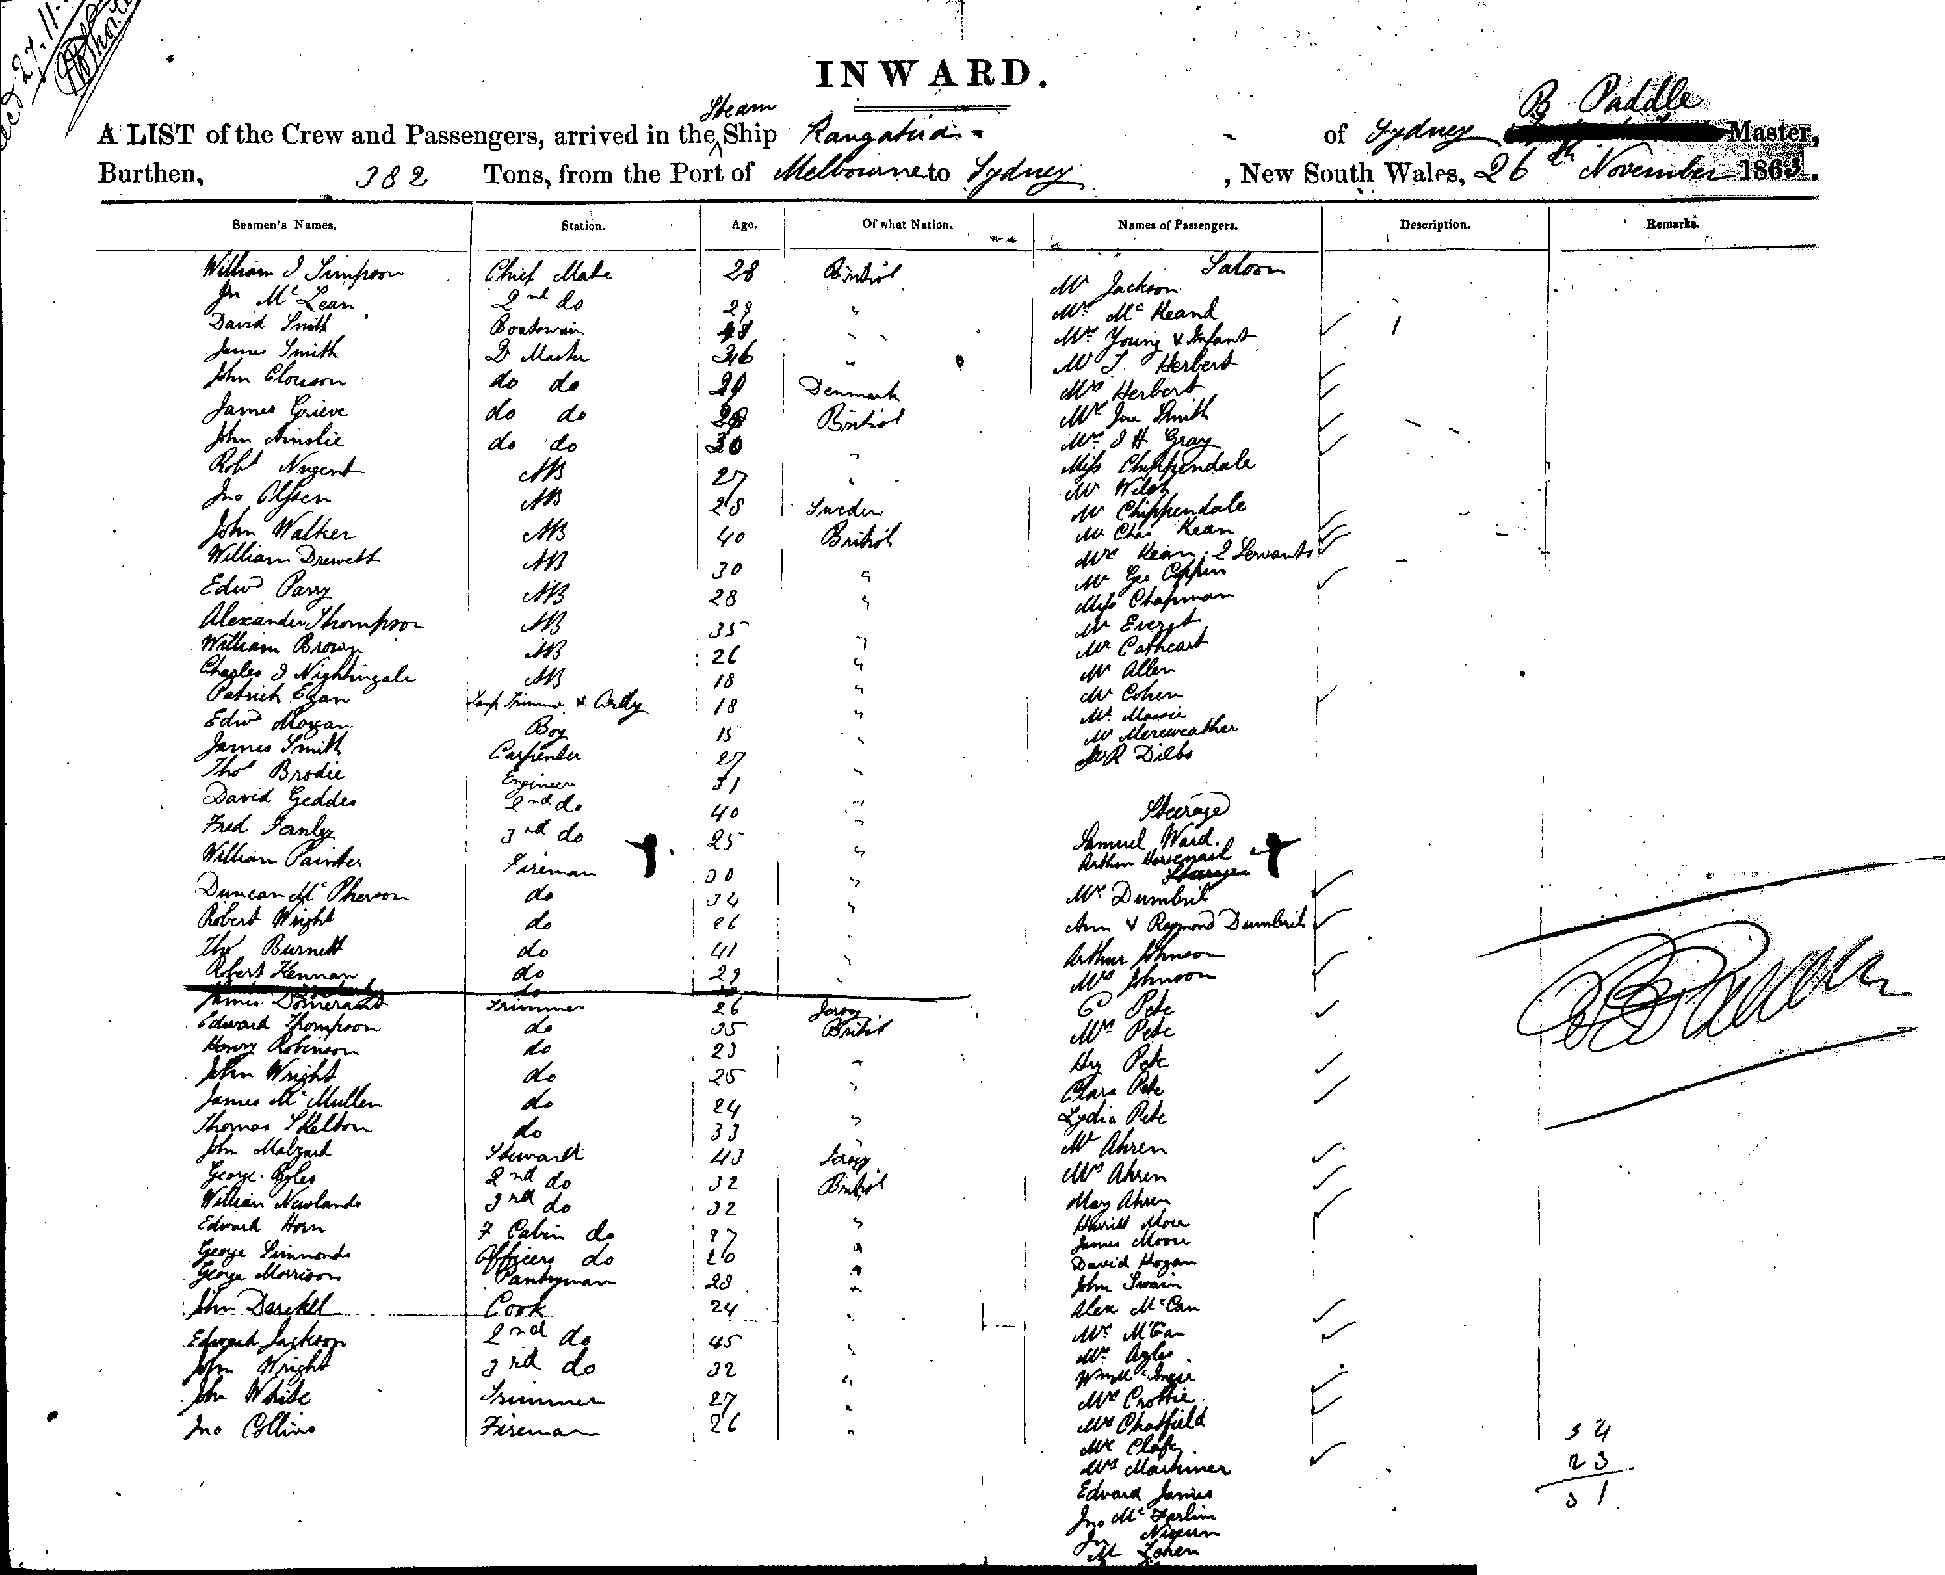 INWARD.
A LIST of the Crew and Passengers, arrived in the Steam Ship Rangatira of Sydney B Paddle Master,
Burthen, 382 Tons, from the Port of Melbourne to Sydney, New South Wales, 26th November 1863.
Seamen's Names. Station. Age. Of what Nation. Names of Passengers. Description. Remarks.
Saloon
William J Simpson Chief Mate 28 British Mr Jackson
Jn McLean 2nd do 29 " Mr McKeand
David Smith Boatswain 48 " Mrs Young & Infant
James Smith Qr Master 36 " Mr J. Herbert
John Clouson do do 29 Denmark Mrs Herbert
James Grieve do do 29 British Mr Jno Smith
John Ainslie do do 30 " Mr J H Gray
Robt Nugent AB 27 " Miss Chippendale
Jno Olssen AB 28 Sweden Mr Welsh
John Walker AB 40 British Mr Chippendale
Mr Chas Kean
William Drewett AB 30 " Mrs Kean, 2 Servants
Edwd Parry AB 28 " Mr Geo Coppin
Miss Chapman
Alexander Thompson AB 35 " Mr Everet
William Brown AB 26 " Mr Cathcart
Charles J Nightingale AB 18 " Mr Allen
Patrick Egan Lamp Trimmer & Ordly 18 " Mr Cohen
Edwd Mogan Boy 15 " Mr Massie
James Smith Carpenter 27 " Mr Mereweather
Thos Brodie Engineer 31 " Dibbs
David Geddes 2nd do 40 " Steerage
Fred 3rd do 25 " Samuel Ward.
William Painter Fireman 30 " Arthur
Steerage
Duncan McPherson do 34 " Mrs Dumbril
Robert Wright do 26 " Ann & Raymond Dumbril
Thos Burnett do 41 " Arthur Johnson
Robert Kennan do 29 " Mrs Johnson
James Trimmer 26 Jersey C Pete
Edward Thompson do 35 British Mrs Pete
Henry Robinson do 23 " Hy Pete
John Wright do 25 " Clara Pete
James McMullen do 24 " Lydia Pete
Thomas Skelton do 33 " Mr Ahren
John Malzard Steward 43 Jersey Mrs Ahren
George Byles 2nd do 32 British May Ahren
William Newlands 3rd do 32
Edward Horn F Cabin do 27 " James Moore
George Simmonds Officers do 20 " David Hogan
George Morrison Pantryman 28 " John Swain
John Cook 24 " Alex McCan
Edward Jackson 2nd do 45 " Mrs McCan
John Wright 3rd do 32 "
John White Trimmer 27 " Mrs Crottie
Jno Collins Fireman 26 " Mrs Chatfield
Mrs Mortimer
Edward James
Jno McFarlin
34
23
51